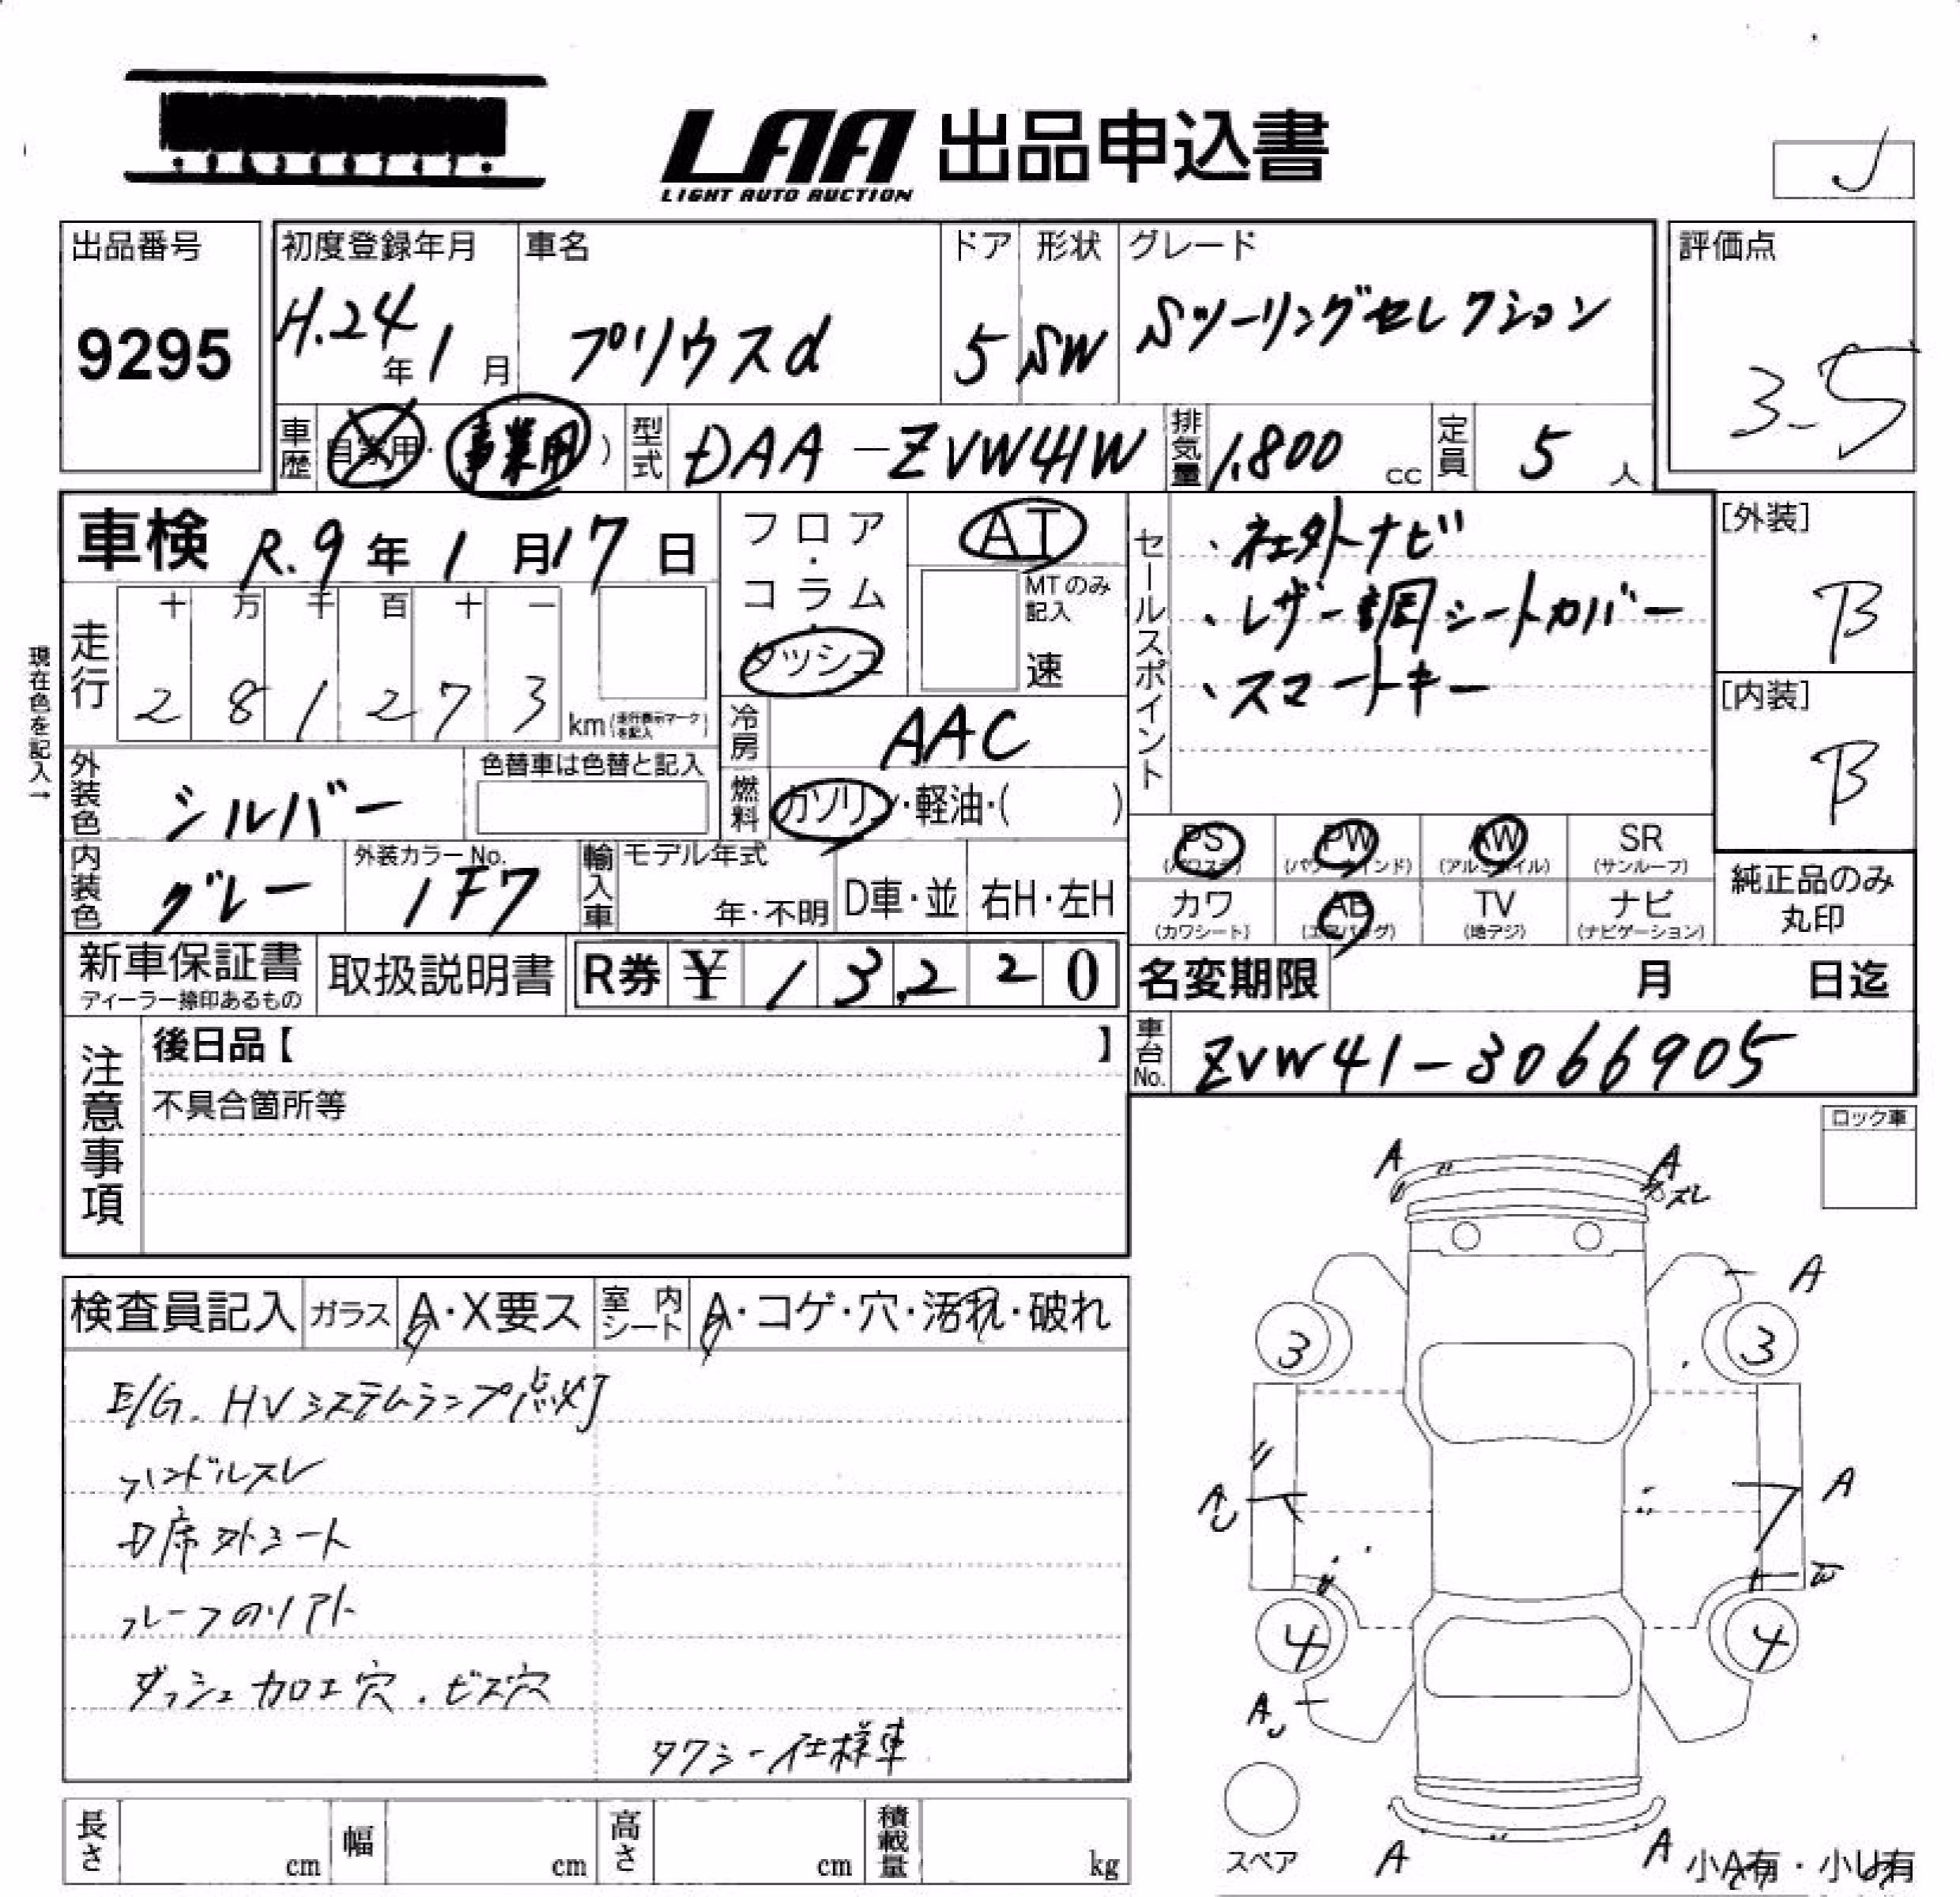 LAA 出品申込書
LIGHT AUTO AUCTION
J
出品番号
9295
初度登録年月
H.24年1月
車名
プリウスα
ドア
5
形状
SW
グレード
Sツーリングセレクション
評価点
3.5
車歴
自家用・事業用)
型式
DAA-ZVW41W
排気量
1,800 cc
定員
5人
車検 R.9年1月17日
走行
十 万 千 百 十 一
2 8 1 2 7 3 km(走行表示マークを記入)
現在色を記入→
フロア・コラム・ダッシュ
AT
MTのみ記入
速
冷房
AAC
燃料
ガソリン・軽油・( )
外装色
シルバー
色替車は色替と記入
内装色
グレー
外装カラーNo.
1F7
輸入車
モデル年式
年・不明
D車・並
右H・左H
セールスポイント
・社外ナビ
・レザー調シートカバー
・スマートキー
[外装]
B
[内装]
B
PS (パワステ)
PW (パワーウインド)
AW (アルミホイル)
SR (サンルーフ)
カワ (カワシート)
AB (エアバッグ)
TV (地デジ)
ナビ (ナビゲーション)
純正品のみ丸印
新車保証書
ディーラー捺印あるもの
取扱説明書
R券 ¥ 13,220
名変期限 月 日迄
車台No.
ZVW41-3066905
注意事項
後日品【 】
不具合箇所等
ロック車
検査員記入
ガラス
A・X要ス
室内シート
A・コゲ・穴・汚れ・破れ
E/G. HVシステムランプ点灯
ハンドルスレ
D席外シート
ルーフのリアト
ダッシュ加工穴.ビス穴
タクシー仕様車
A
A
スレ
A
3
3
A
A
W
4
4
A
スペア
A
A
小A有・小U有
長さ cm
幅 cm
高さ cm
積載量 kg